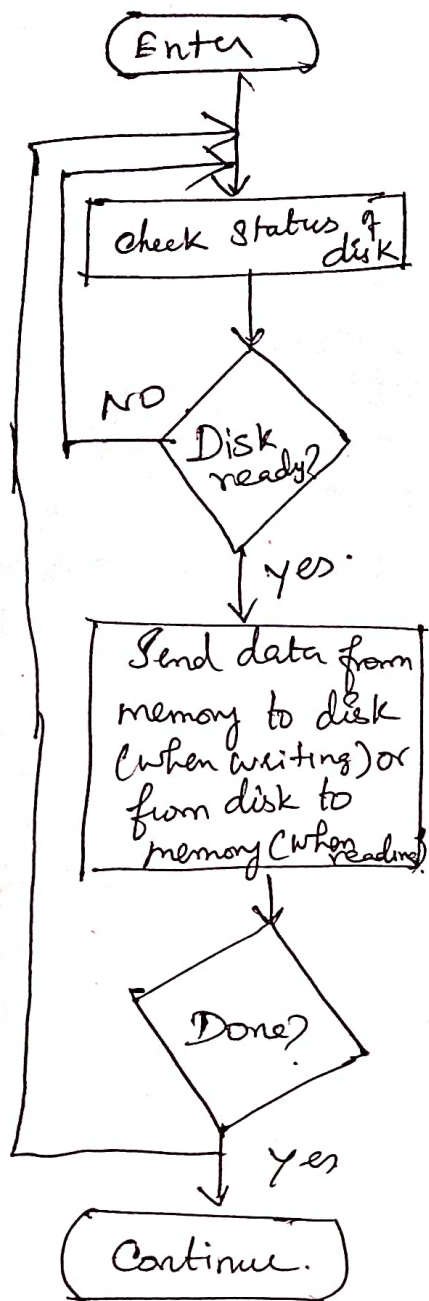 Enter
check status of
disk
NO
Disk
ready?
yes.
Send data from
memory to disk
(when writing) or
from disk to
memory (when reading)
Done?
yes
Continue.